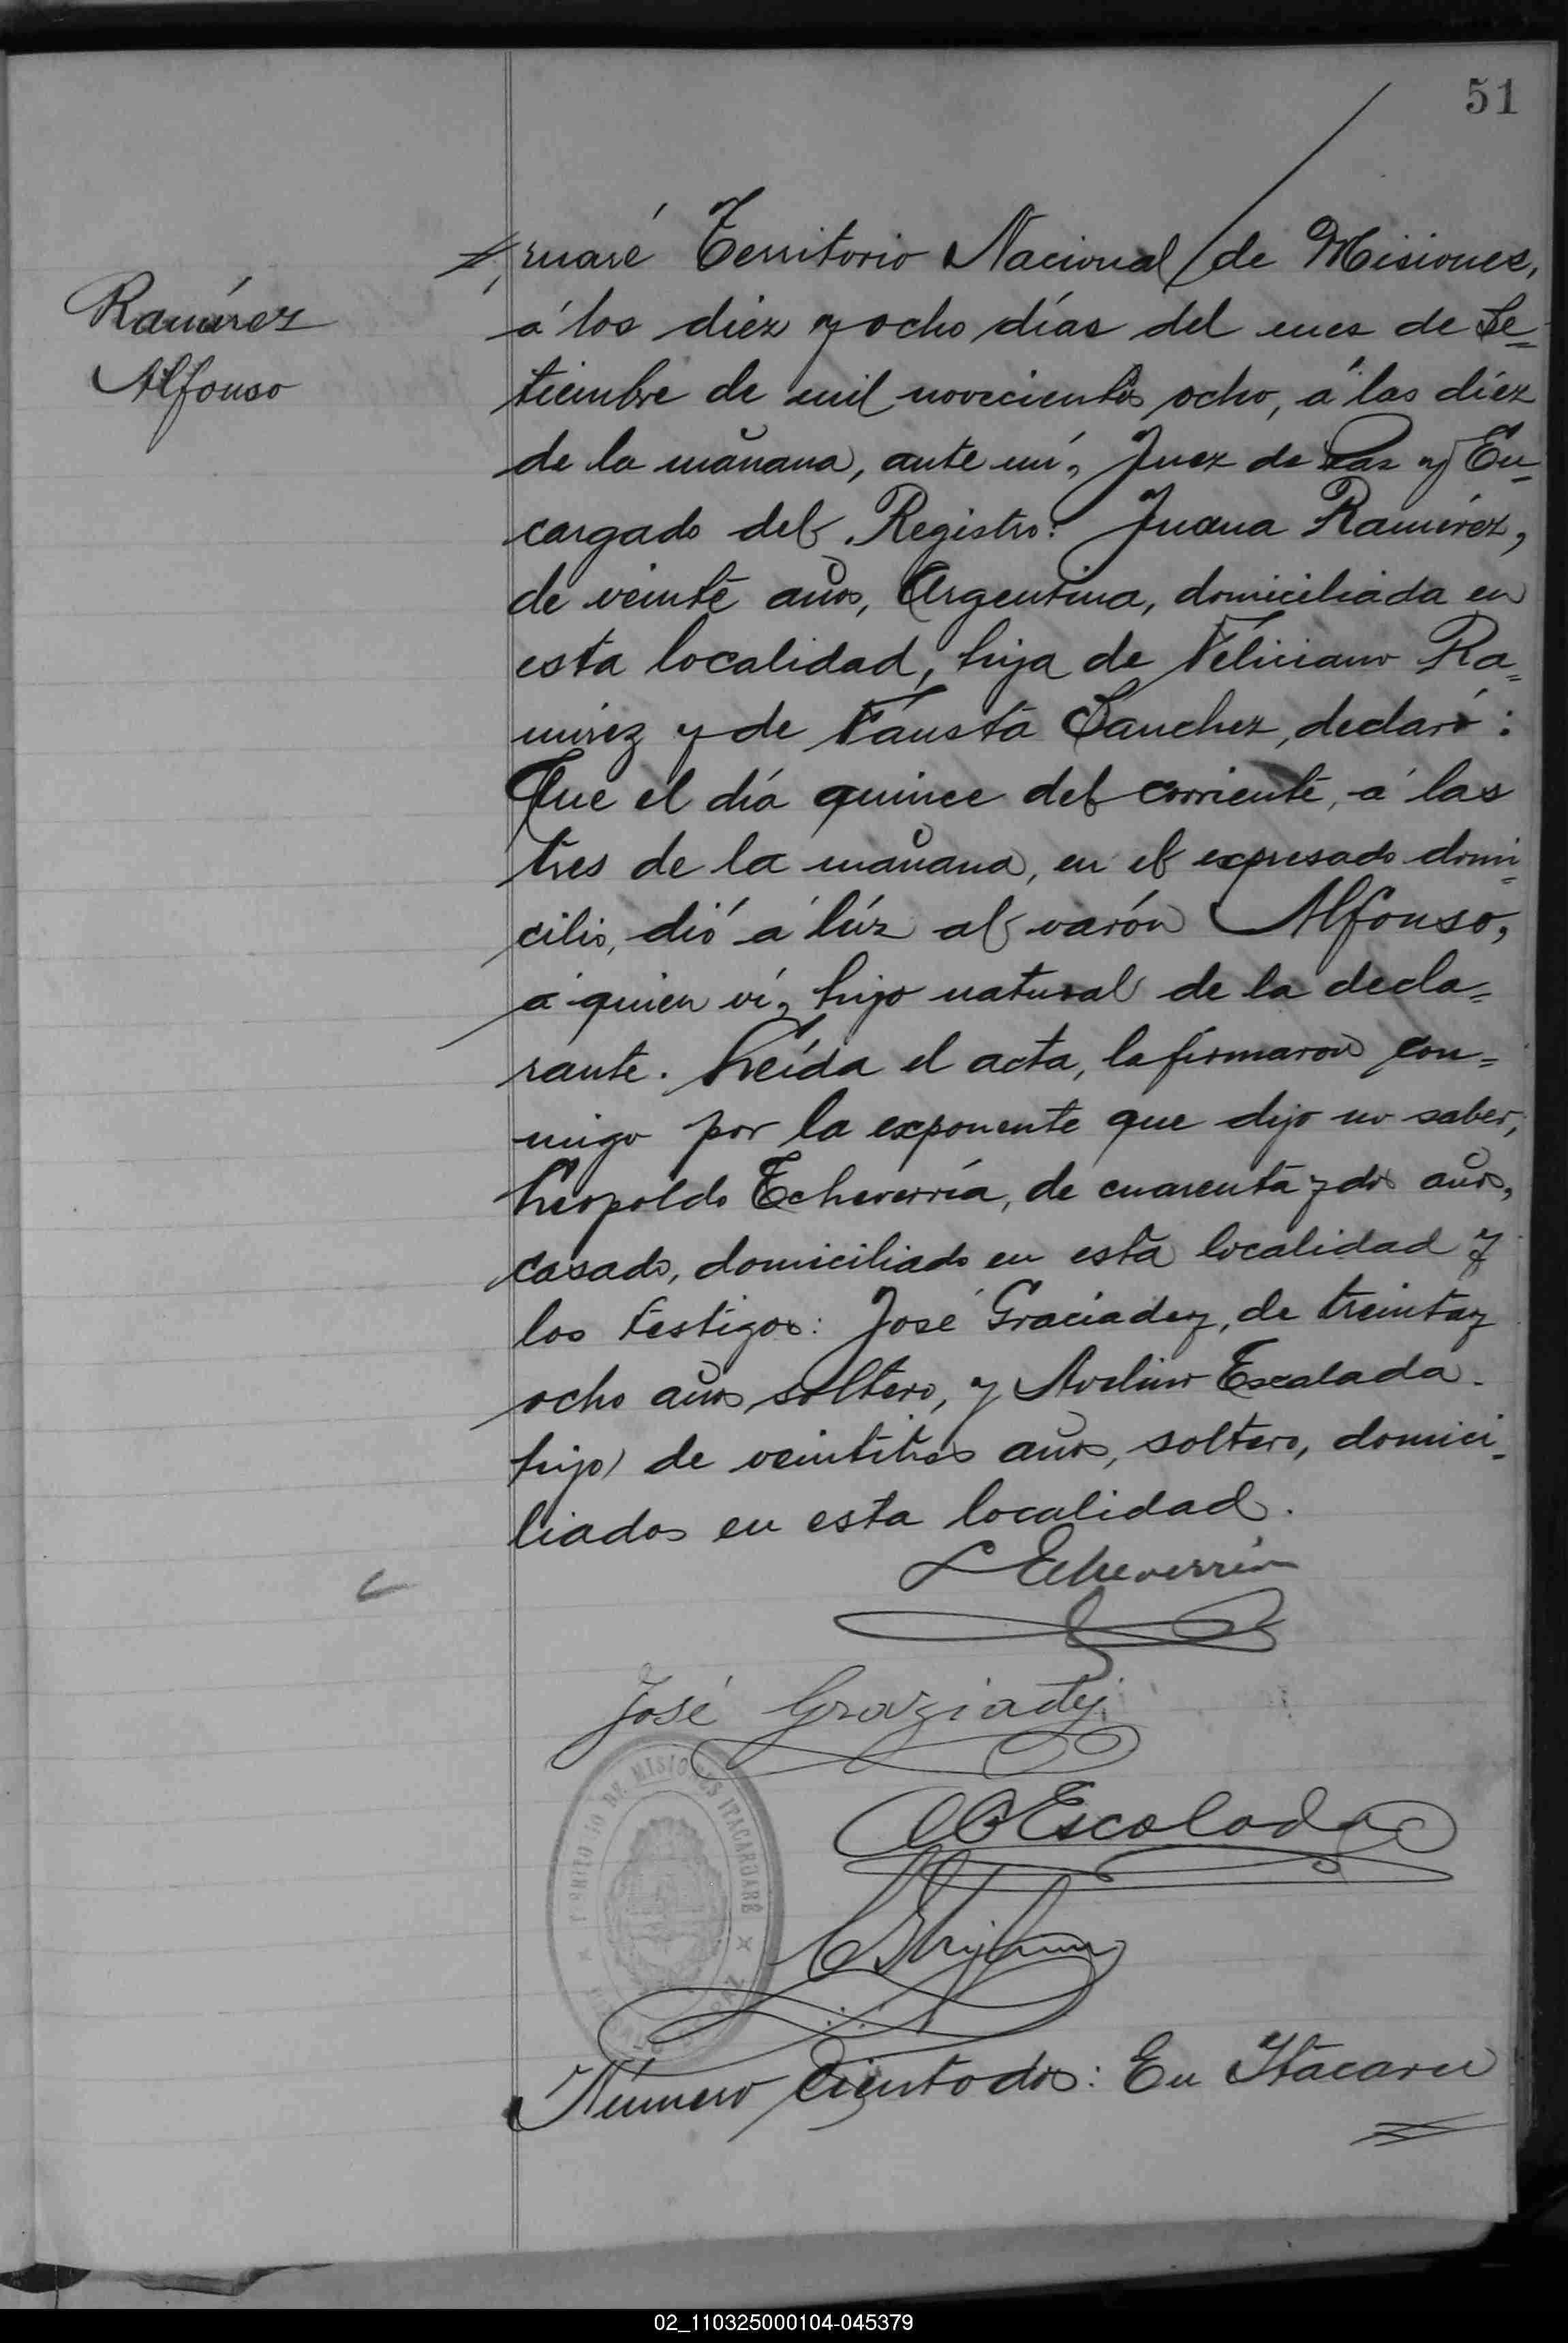 51
Ramírez
Alfonso
ruaré Territorio Nacional de Misiones,
á los diez y ocho días del mes de Se=
tiembre de mil novecientos ocho, á las diéz
de la mañana, ante mí, Juez de Paz y En=
cargado del Registro: Juana Ramírez,
de veinte años, Argentina, domiciliada en
esta localidad, hija de Féliciano Ra=
mírez y de Fausta Sanchez, declaró:
Que el día quince del corriente, á las
tres de la mañana, en el expresado domi=
cilio, dió á lúz al varón Alfonso,
á quien ví, hijo natural de la decla=
rante. Leída el acta, la firmaron con=
migo por la exponente que dijo no saber,
Leopoldo Echeverría, de cuarenta y dos años,
casado, domiciliado en esta localidad y
los testigos: José Graciadey, de treinta y
ocho años soltero, y Avelino Escalada
hijo) de veintitres años, soltero, domici=
liados en esta localidad.
L Echeverría
José Graziady
Escalada
TERRITORIO DE MISIONES ITACARUARÉ
Número ciento dos: En Itacaru
=
02_110325000104-045379